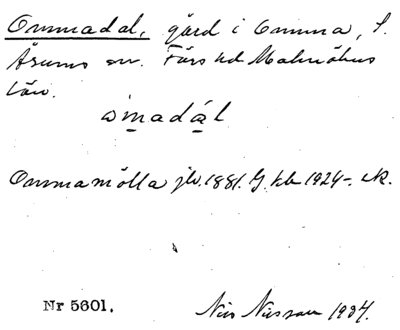 Ommadal, gård i Omma, S.
Åsums sn. Färs hd Malmöhus
län.
omadál
Ommamölla jlv. 1881. G. kb 1924-. ek.
Nr 5601.
Nils Nilsson 1934.